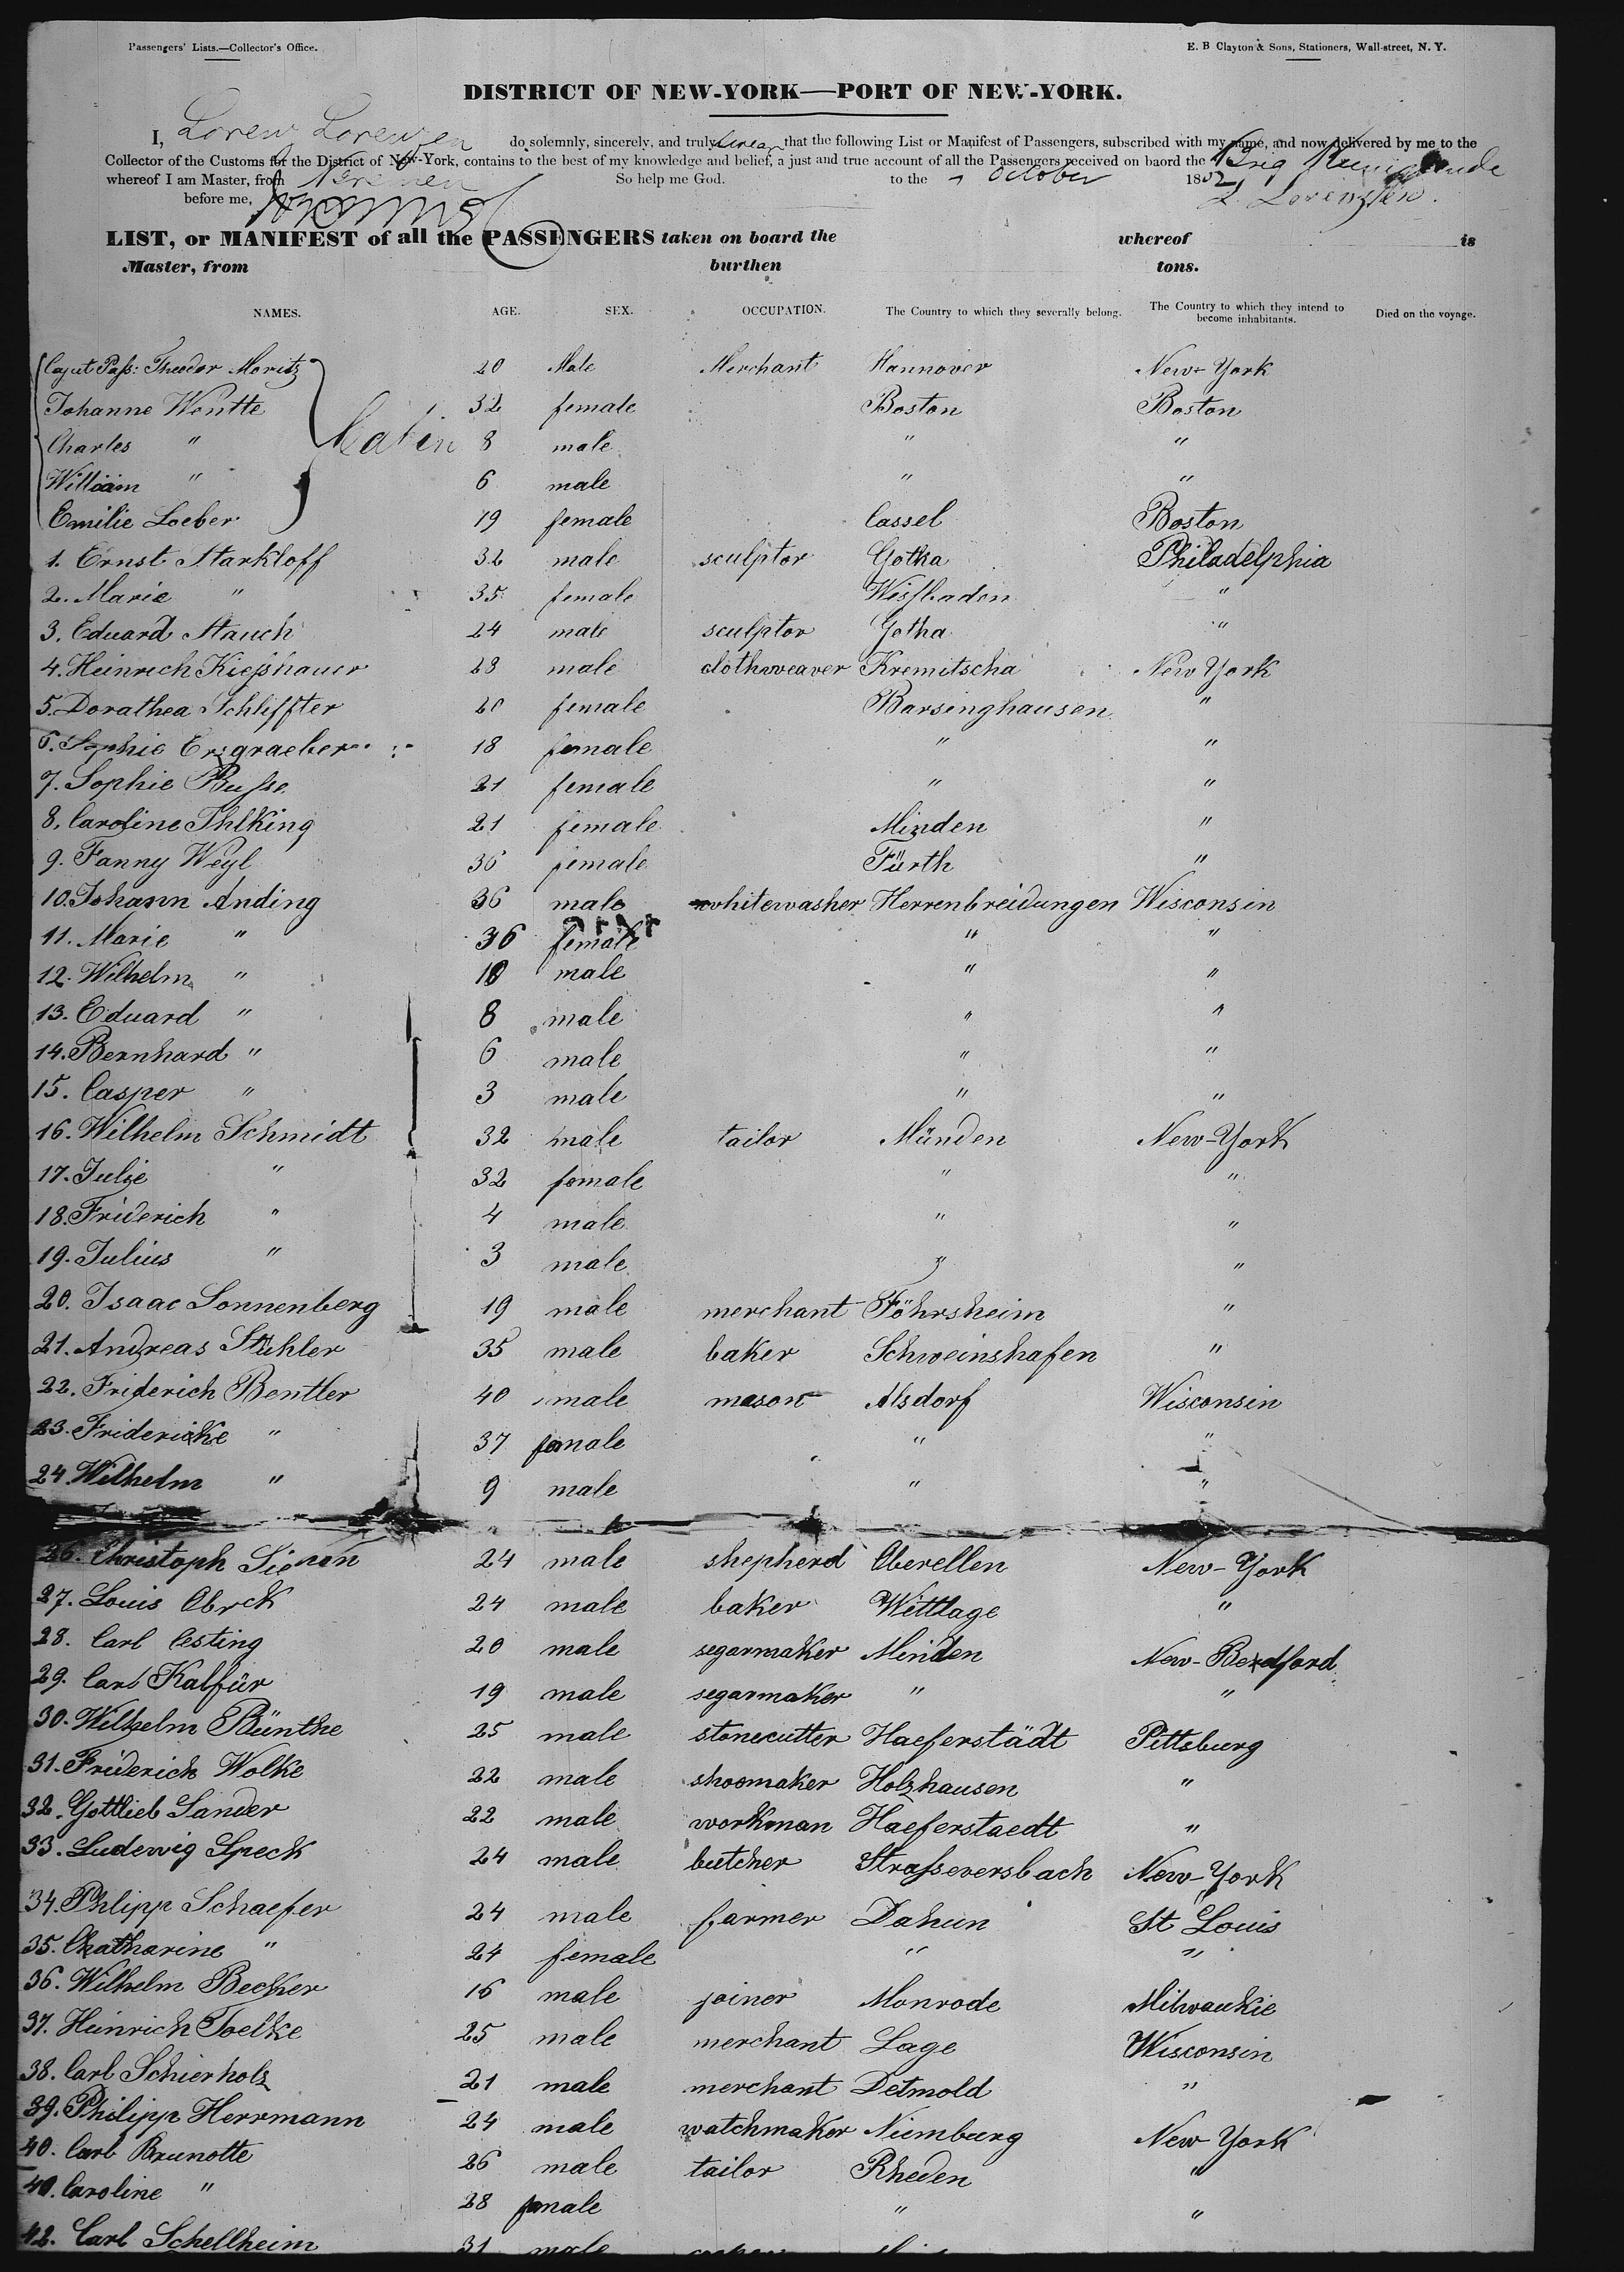 Passengers' Lists.—Collector's Office.
E. B Clayton & Sons, Stationers, Wall-street, N. Y.
DISTRICT OF NEW-YORK—PORT OF NEW-YORK.
I, Lorenz Lorenzen do solemnly, sincerely, and truly swear that the following List or Manifest of Passengers, subscribed with my name, and now delivered by me to the
Collector of the Customs for the District of New-York, contains to the best of my knowledge and belief, a just and true account of all the Passengers received on baord the Brig
whereof I am Master, from Bremen So help me God. to the October 1852
before me, L. Lorenzen.
LIST, or MANIFEST of all the PASSENGERS taken on board the whereof is
Master, from burthen tons.
NAMES. AGE. SEX. OCCUPATION. The Country to which they severally belong. The Country to which they intend to become inhabitants. Died on the voyage.
Cajut Pass: Theodor Moritz 20 Male Merchant Hannover New-York
Johanne Wentte 32 female Boston Boston
Charles " Cabin 8 male " "
William " 6 male " "
Emilie Loeber 19 female Cassel Boston
1. Ernst Starkloff 32 male sculptor Gotha Philadelphia
2. Marie " 35 female Wissbaden "
3. Eduard Stauch 24 male sculptor Gotha "
4. Heinrich Kiesshauer 28 male clothweaver Kremitscha New York
5. Dorathea Schliffter 20 female Barsinghausen "
6. Sophie Erzgraeber 18 female " "
7. Sophie Busse 21 female " "
8. Caroline Ihlking 21 female Minden "
9. Fanny Weyl 36 female Fürth "
10. Johann Anding 36 male whitewasher Herrenbreidungen Wisconsin
11. Marie " 36 female " "
12. Wilhelm " 10 male " "
13. Eduard " 8 male " "
14. Bernhard " 6 male " "
15. Casper " 3 male " "
16. Wilhelm Schmidt 32 male tailor Münden New-York
17. Julie " 32 female " "
18. Friderich " 4 male " "
19. Julius " 3 male " "
20. Isaac Sonnenberg 19 male merchant Föhrsheim "
21. Andreas Stühler 35 male baker Schweinshafen "
22. Friderich Bentler 40 male mason Alsdorf Wisconsin
23. Fridericke " 37 female " "
24. Wilhelm " 9 male " "
26. Christoph Siemon 24 male shepherd Oberellen New-York
27. Louis Obrck 24 male baker Wittlage "
28. Carl Oesting 20 male segarmaker Minden New-Bedford
29. Carl Kalfür 19 male segarmaker " "
30. Wilhelm Bünthe 25 male stonecutter Haeferstädt Pittsburg
31. Friderich Wolke 22 male shoemaker Holzhausen "
32. Gottlieb Sander 22 male workman Haeferstaedt "
33. Ludewig Speck 24 male butcher Strasseversbach New-York
34. Philipp Schaefer 24 male farmer Dahun St Louis
35. Chatharine " 24 female " "
36. Wilhelm Becker 16 male joiner Monrode Milwaukie
37. Heinrich Toelke 25 male merchant Lage Wisconsin
38. Carl Schierholz 21 male merchant Detmold "
39. Philipp Herrmann 24 male watchmaker Niemburg New York
40. Carl Brunotte 26 male tailor Rheden "
40. Caroline " 28 female " "
42. Carl Schellheim 31 male